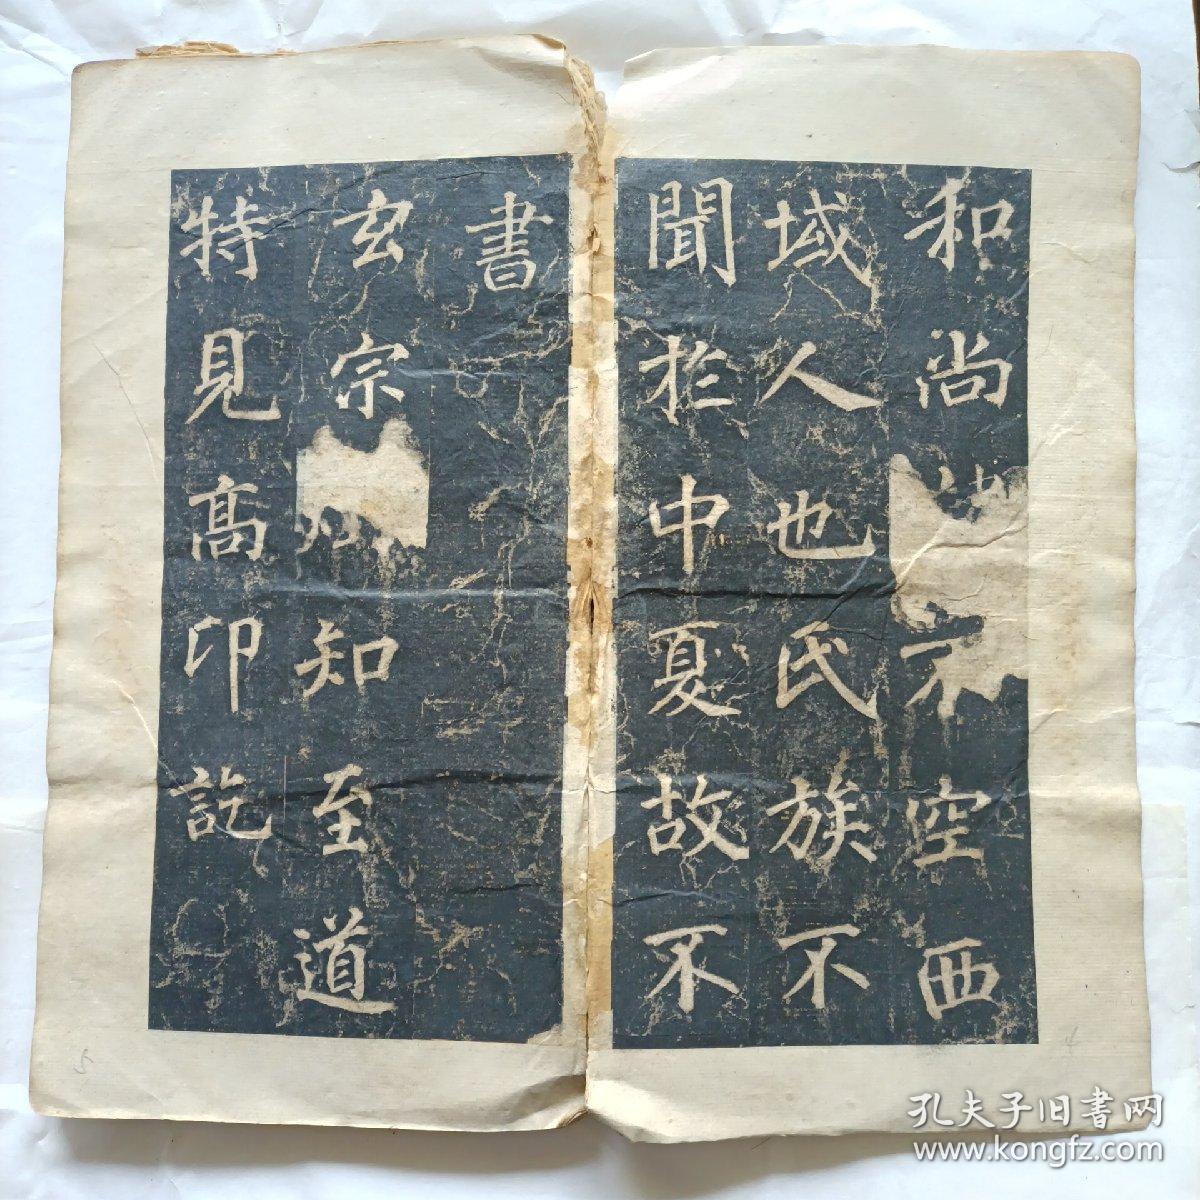 和尚諱不空西
域人也氏族不
聞於中夏故不
書
玄宗知至道
特見高仰訖
5
4
孔夫子旧書网
www.kongfz.com